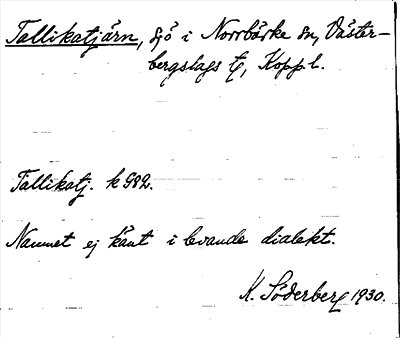 Tallikatjärn, sjö i Norrbärke sn, Väster-
bergslags tg, Koppl.
Tallikatj. k 982.
Namnet ej känt i levande dialekt.
K. Söderberg 1930.